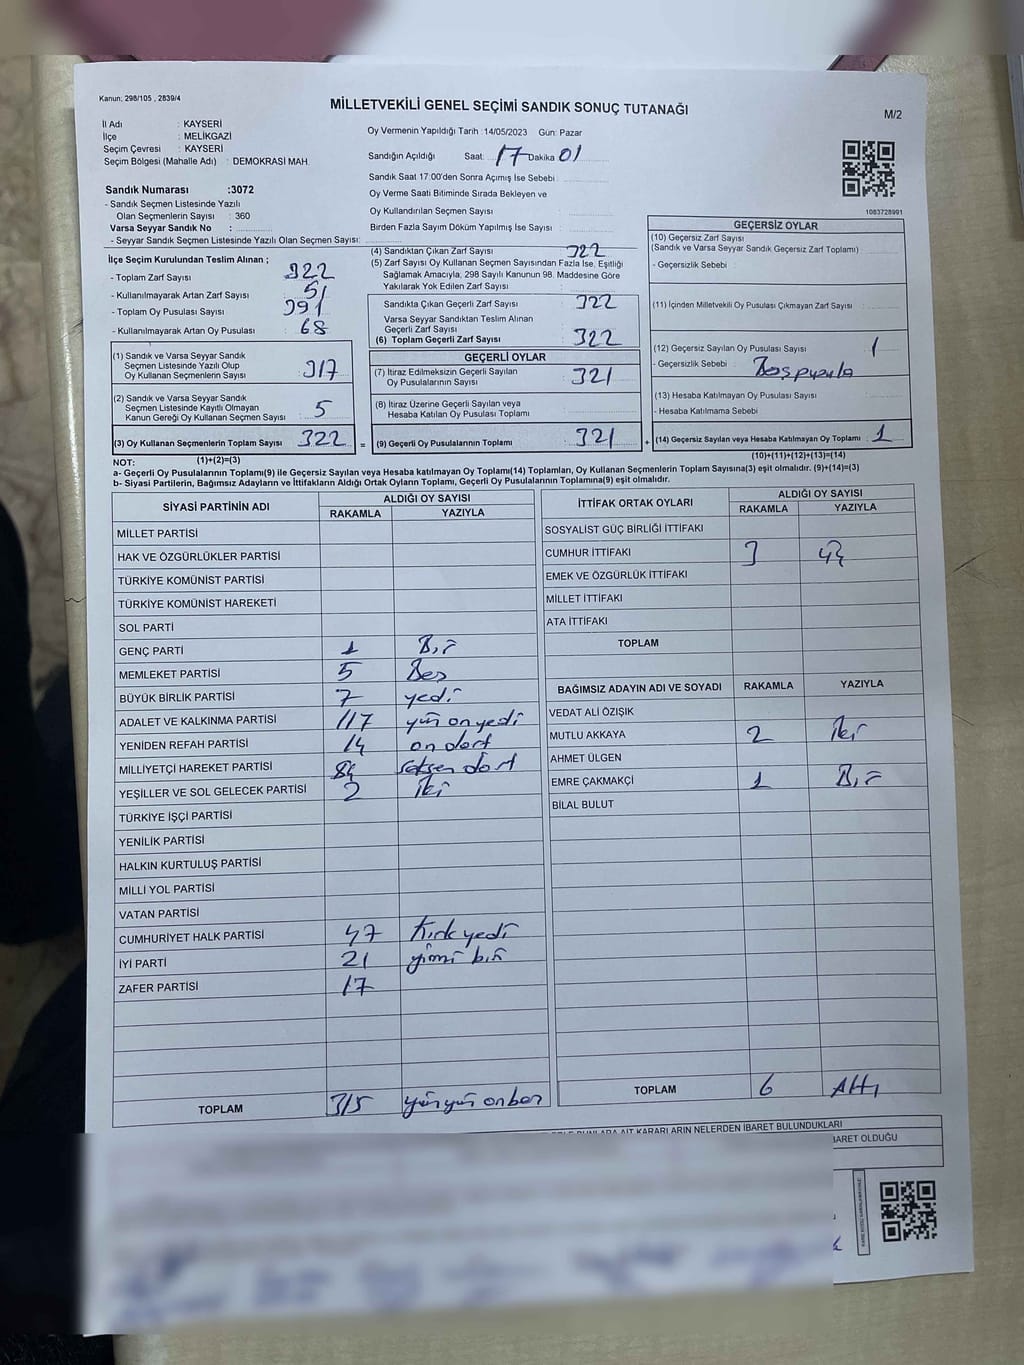 Kanun; 298/105 , 2839/4
MİLLETVEKİLİ GENEL SEÇİMİ SANDIK SONUÇ TUTANAĞI
M/2
İl Adı : KAYSERİ
İlçe : MELİKGAZİ
Seçim Çevresi : KAYSERİ
Seçim Bölgesi (Mahalle Adı) : DEMOKRASİ MAH.
Oy Vermenin Yapıldığı Tarih :14/05/2023 Gün: Pazar
Sandığın Açıldığı Saat: 17 Dakika 01
Sandık Saat 17:00'den Sonra Açımış İse Sebebi :
Oy Verme Saati Bitiminde Sırada Bekleyen ve
Oy Kullandırılan Seçmen Sayısı
Birden Fazla Sayım Döküm Yapılmış İse Sayısı :
1083728991
Sandık Numarası :3072
- Sandık Seçmen Listesinde Yazılı
Olan Seçmenlerin Sayısı : 360
Varsa Seyyar Sandık No :
- Seyyar Sandık Seçmen Listesinde Yazılı Olan Seçmen Sayısı:
İlçe Seçim Kurulundan Teslim Alınan ;
- Toplam Zarf Sayısı : 322
- Kullanılmayarak Artan Zarf Sayısı : 51
- Toplam Oy Pusulası Sayısı : 391
- Kullanılmayarak Artan Oy Pusulası : 68
(1) Sandık ve Varsa Seyyar Sandık
Seçmen Listesinde Yazılı Olup
Oy Kullanan Seçmenlerin Sayısı : 317
(2) Sandık ve Varsa Seyyar Sandık
Seçmen Listesinde Kayıtlı Olmayan
Kanun Gereği Oy Kullanan Seçmen Sayısı : 5
(3) Oy Kullanan Seçmenlerin Toplam Sayısı : 322
(1)+(2)=(3)
(4) Sandıktan Çıkan Zarf Sayısı : 322
(5) Zarf Sayısı Oy Kullanan Seçmen Sayısından Fazla İse, Eşitliği
Sağlamak Amacıyla, 298 Sayılı Kanunun 98. Maddesine Göre
Yakılarak Yok Edilen Zarf Sayısı :
Sandıkta Çıkan Geçerli Zarf Sayısı : 322
Varsa Seyyar Sandıktan Teslim Alınan
Geçerli Zarf Sayısı :
(6) Toplam Geçerli Zarf Sayısı : 322
GEÇERLİ OYLAR
(7) İtiraz Edilmeksizin Geçerli Sayılan
Oy Pusulalarının Sayısı : 321
(8) İtiraz Üzerine Geçerli Sayılan veya
Hesaba Katılan Oy Pusulası Toplamı :
= (9) Geçerli Oy Pusulalarının Toplamı : 321
GEÇERSİZ OYLAR
(10) Geçersiz Zarf Sayısı
(Sandık ve Varsa Seyyar Sandık Geçersiz Zarf Toplamı) :
- Geçersizlik Sebebi :
(11) İçinden Milletvekili Oy Pusulası Çıkmayan Zarf Sayısı :
(12) Geçersiz Sayılan Oy Pusulası Sayısı : 1
- Geçersizlik Sebebi : Boş pusula
(13) Hesaba Katılmayan Oy Pusulası Sayısı :
- Hesaba Katılmama Sebebi
+ (14) Geçersiz Sayılan veya Hesaba Katılmayan Oy Toplamı : 1
(10)+(11)+(12)+(13)=(14)
NOT:
a- Geçerli Oy Pusulalarının Toplamı(9) ile Geçersiz Sayılan veya Hesaba katılmayan Oy Toplamı(14) Toplamları, Oy Kullanan Seçmenlerin Toplam Sayısına(3) eşit olmalıdır. (9)+(14)=(3)
b- Siyasi Partilerin, Bağımsız Adayların ve İttifakların Aldığı Ortak Oyların Toplamı, Geçerli Oy Pusulalarının Toplamına(9) eşit olmalıdır.
SİYASİ PARTİNİN ADI ALDIĞI OY SAYISI
RAKAMLA YAZIYLA
MİLLET PARTİSİ
HAK VE ÖZGÜRLÜKLER PARTİSİ
TÜRKİYE KOMÜNİST PARTİSİ
TÜRKİYE KOMÜNİST HAREKETİ
SOL PARTİ
GENÇ PARTİ 1 Bir
MEMLEKET PARTİSİ 5 Beş
BÜYÜK BİRLİK PARTİSİ 7 yedi
ADALET VE KALKINMA PARTİSİ 117 yüz onyedi
YENİDEN REFAH PARTİSİ 14 on dört
MİLLİYETÇİ HAREKET PARTİSİ 84 seksen dört
YEŞİLLER VE SOL GELECEK PARTİSİ 2 iki
TÜRKİYE İŞÇİ PARTİSİ
YENİLİK PARTİSİ
HALKIN KURTULUŞ PARTİSİ
MİLLİ YOL PARTİSİ
VATAN PARTİSİ
CUMHURİYET HALK PARTİSİ 47 kırk yedi
İYİ PARTİ 21 yirmi bir
ZAFER PARTİSİ 17
TOPLAM 315
İTTİFAK ORTAK OYLARI ALDIĞI OY SAYISI
RAKAMLA YAZIYLA
SOSYALİST GÜÇ BİRLİĞİ İTTİFAKI
CUMHUR İTTİFAKI 3
EMEK VE ÖZGÜRLÜK İTTİFAKI
MİLLET İTTİFAKI
ATA İTTİFAKI
TOPLAM
BAĞIMSIZ ADAYIN ADI VE SOYADI RAKAMLA YAZIYLA
VEDAT ALİ ÖZIŞIK
MUTLU AKKAYA 2 iki
AHMET ÜLGEN
EMRE ÇAKMAKÇİ 1 Bir
BİLAL BULUT
TOPLAM 6 Altı
BUNLARA AİT KARARLARIN NELERDEN İBARET BULUNDUKLARI
BARET OLDUĞU